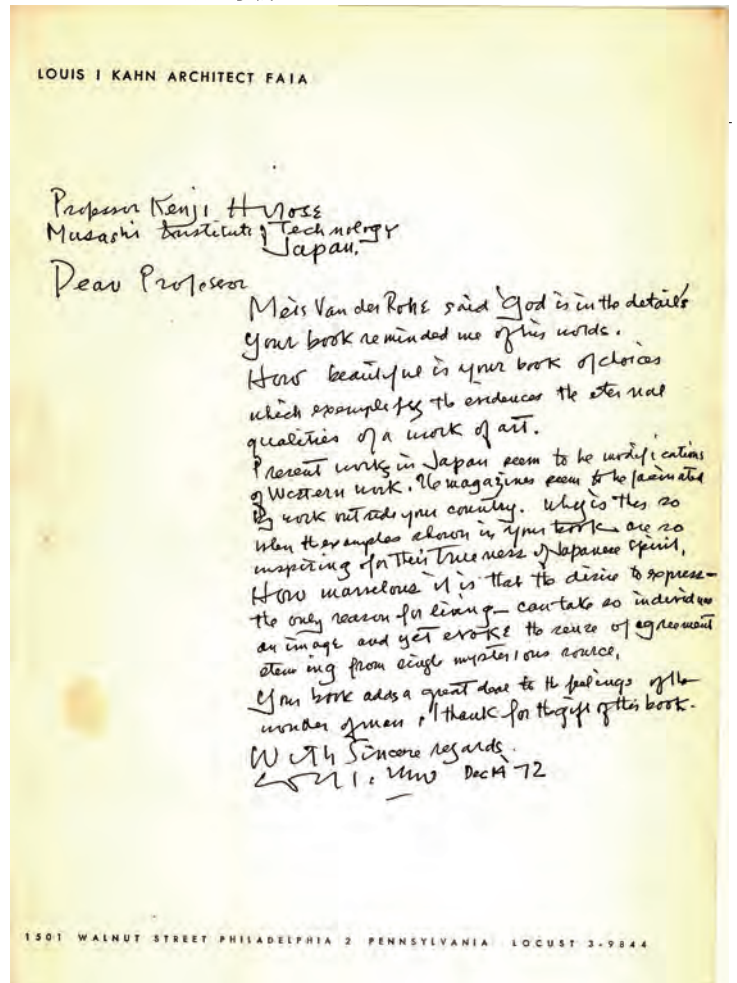 LOUIS I KAHN ARCHITECT FAIA
Professor Kenji Hirose
Musashi Institute of Technology
Japan.
Dear Professor
Meis Van der Rohe said 'God is in the details
Your book reminded me of his words.
How beautiful is your book of choices
which exemplefys the evidences the eternal
qualities of a work of art.
Present works in Japan seem to be modifications
of Western work. The magazines seem to be fascinated
by work outside your country. Why is this so
when the examples shown in your book are so
inspiring for their trueness of Japanese spirit.
How marvelous it is that the desire to express -
the only reason for living - can take so individual
an image and yet evoke the sense of agreement
steming from single mysterious source.
Your book adds a great deal to the feelings of the
wonder of man. I thank for the gift of this book.
With Sincere regards.
Dec 14 '72
1501 WALNUT STREET PHILADELPHIA 2 PENNSYLVANIA LOCUST 3-9844